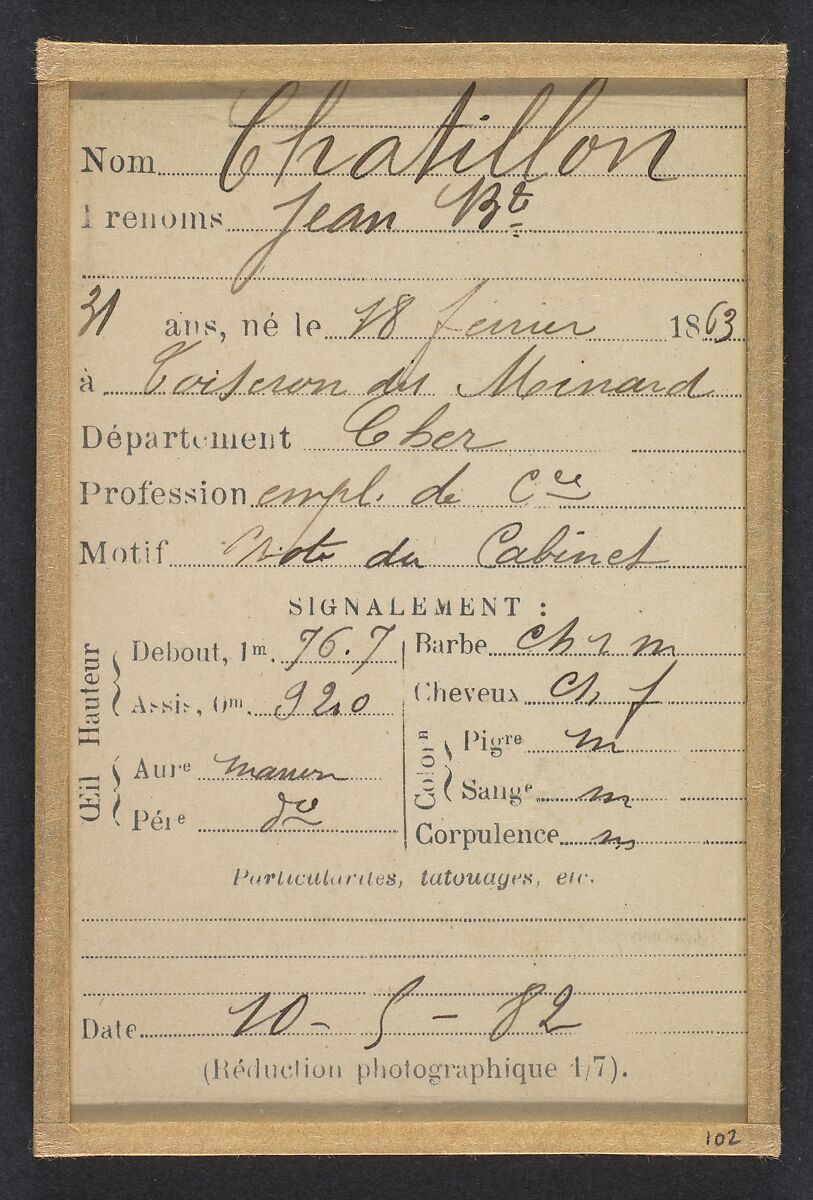 Nom Chatillon
Prenoms Jean Bte
31 ans, né le 18 février 1863
à Loiseron du Minard
Département Cher
Profession empl. de Cce
Motif Note du Cabinet
SIGNALEMENT :
Hauteur
Debout, 1m. 76.7
Assis, 0m. 92,0
Œil
Aure marron
Pére do
Barbe ch r m
Cheveux ch f
Colorn
Pigre m
Sange m
Corpulence m
Particularités, tatouages, etc.
Date 10 - 5 - 82
(Réduction photographique 1/7).
102